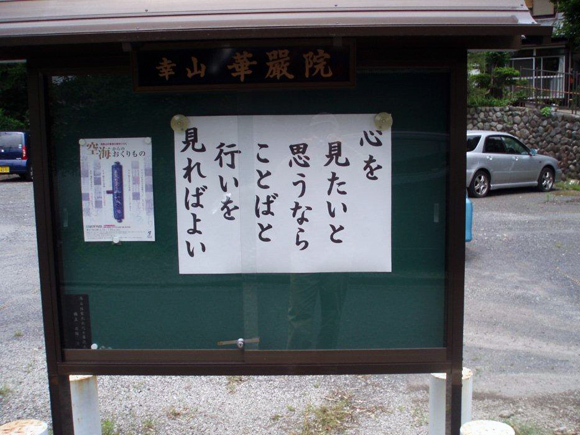 幸山 華嚴院
心を
見たいと
思うなら
ことばと
行いを
見ればよい
空海からの
おくりもの